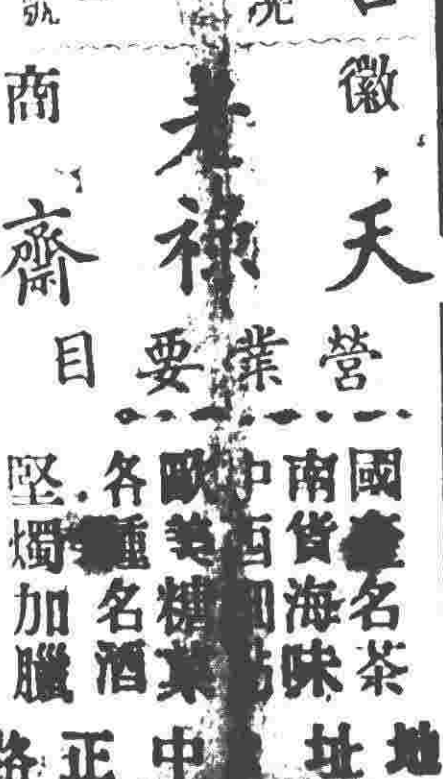 徽老商
天祿齋
營業要目
國產名茶
南貨海味
中西細點
歐美糖菓
各種名酒
堅燭加臘
地址 中正路